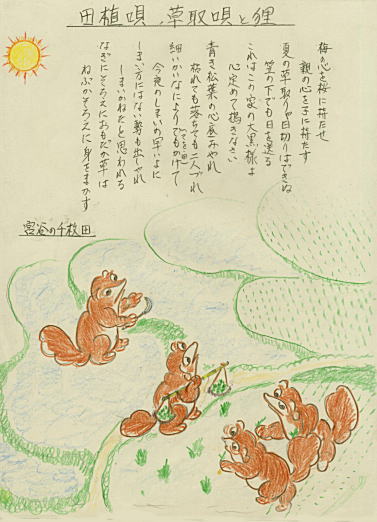 田植唄、草取唄と狸
梅の心を桜に持たせ
親の心を子に持たす
夏の草取り 日切りはできぬ
笠の下でも日を送る
これはこの家の大黒様よ
心定めて搗きなさい
青き松葉の心底みやれ
枯れても落ちても二人づれ
細いかいなによりでもかけて
今夜のしまいの早いよに
しまい方にはない勢も出しやれ
しまいかねたと思われる
なぎにそろえにおもだか草は
ねぶかそろえに身をまかす
宮谷の千枚田